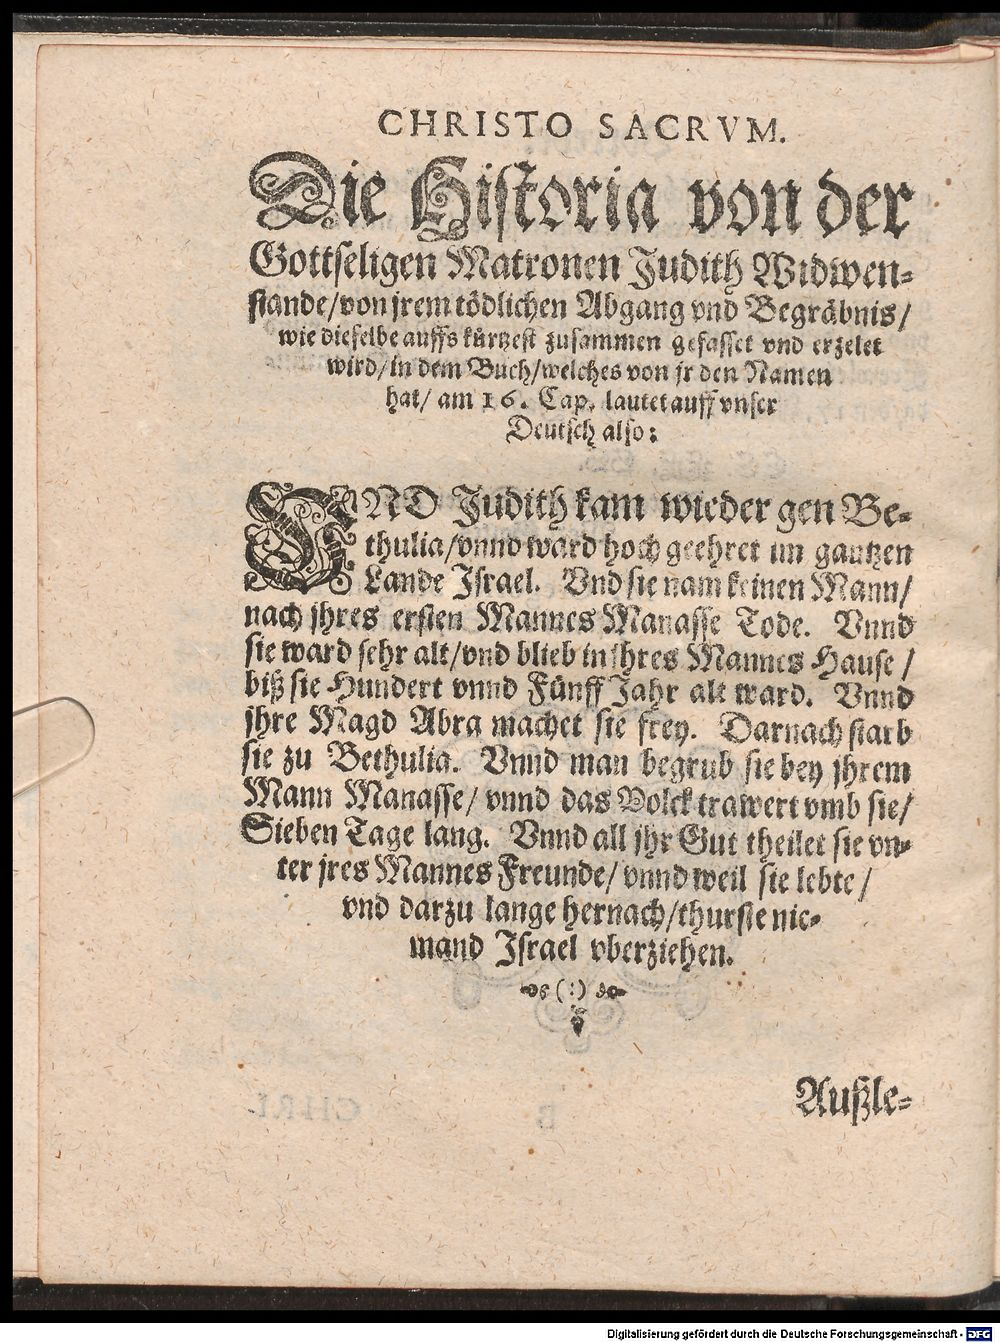 CHRISTO SACRVM.
Die Historia von der
Gottseligen Matronen Judith Widwen-
stande/von jrem tödlichen Abgang vnd Begräbnis/
wie dieselbe auffs kürtzest zusammen gefasset vnd erzelet
wird/in dem Buch/welches von jr den Namen
hat/ am 16. Cap. lautet auff vnser
Deutsch also:
VND Judith kam wieder gen Be-
thulia/vnnd ward hoch geehret im gantzen
Lande Israel. Vnd sie nam keinen Mann/
nach jhres ersten Mannes Manasse Tode. Vnnd
sie ward sehr alt/vnd blieb in jhres Mannes Hause/
biß sie Hundert vnnd Fünff Jahr alt ward. Vnnd
jhre Magd Abra machet sie frey. Darnach starb
sie zu Bethulia. Vnnd man begrub sie bey jhrem
Mann Manasse/ vnnd das Volck trawert vmb sie/
Sieben Tage lang. Vnnd all jhr Gut theilet sie vn-
ter jres Mannes Freunde/ vnnd weil sie lebte/
vnd darzu lange hernach/thurste nie-
mand Israel vberziehen.
(:)
Außle-
Digitalisierung gefördert durch die Deutsche Forschungsgemeinschaft - DFG